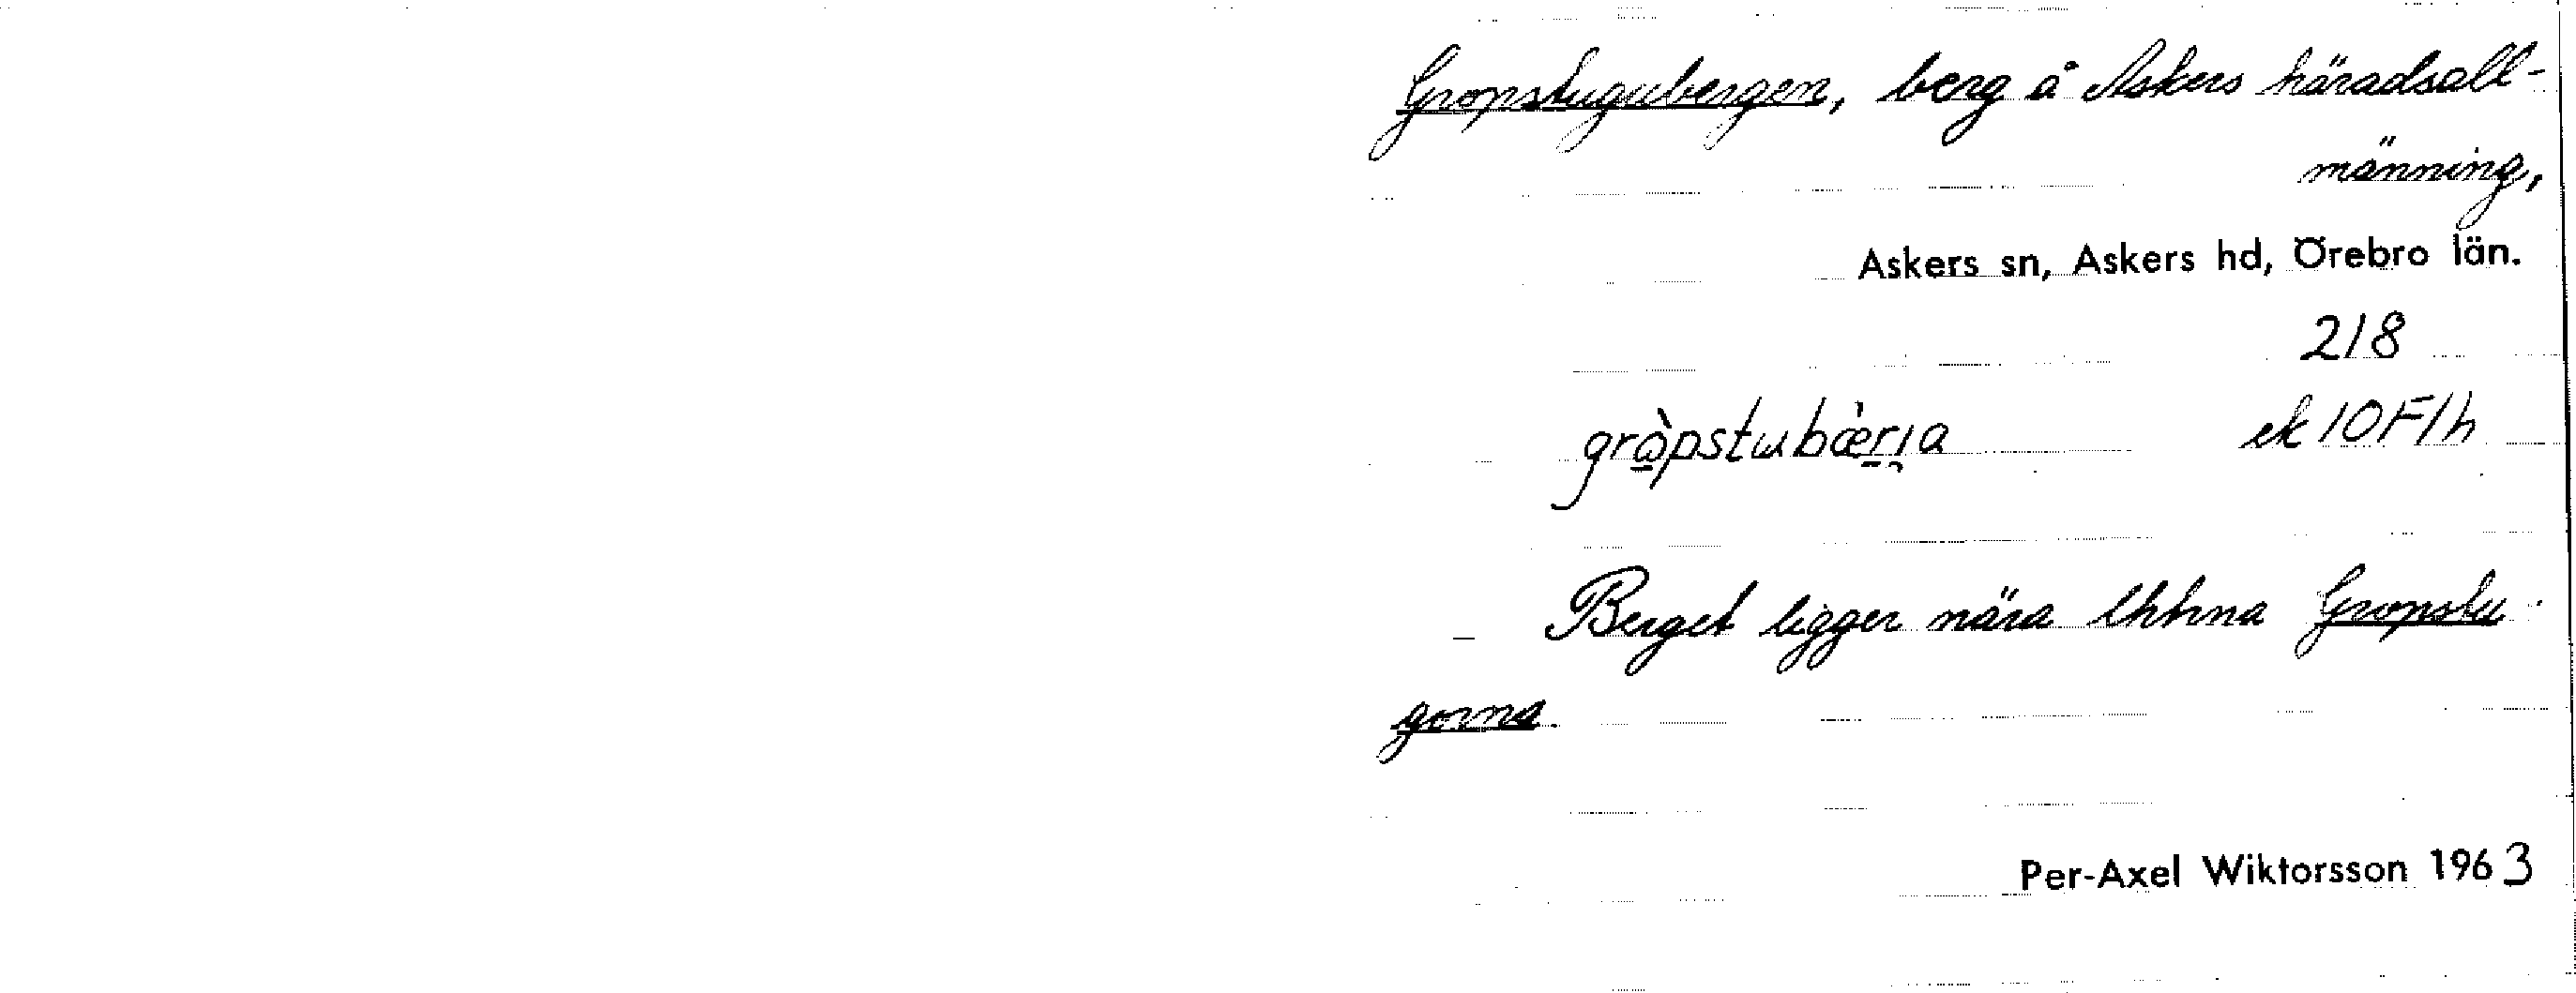 Gropstugubergen, berg å Askers häradsall-
männing,
Askers sn, Askers hd, Örebro län.
218
ek 10F1h
Berget ligger nära lhhna Gropstu-
gorna.
Per-Axel Wiktorsson 1963